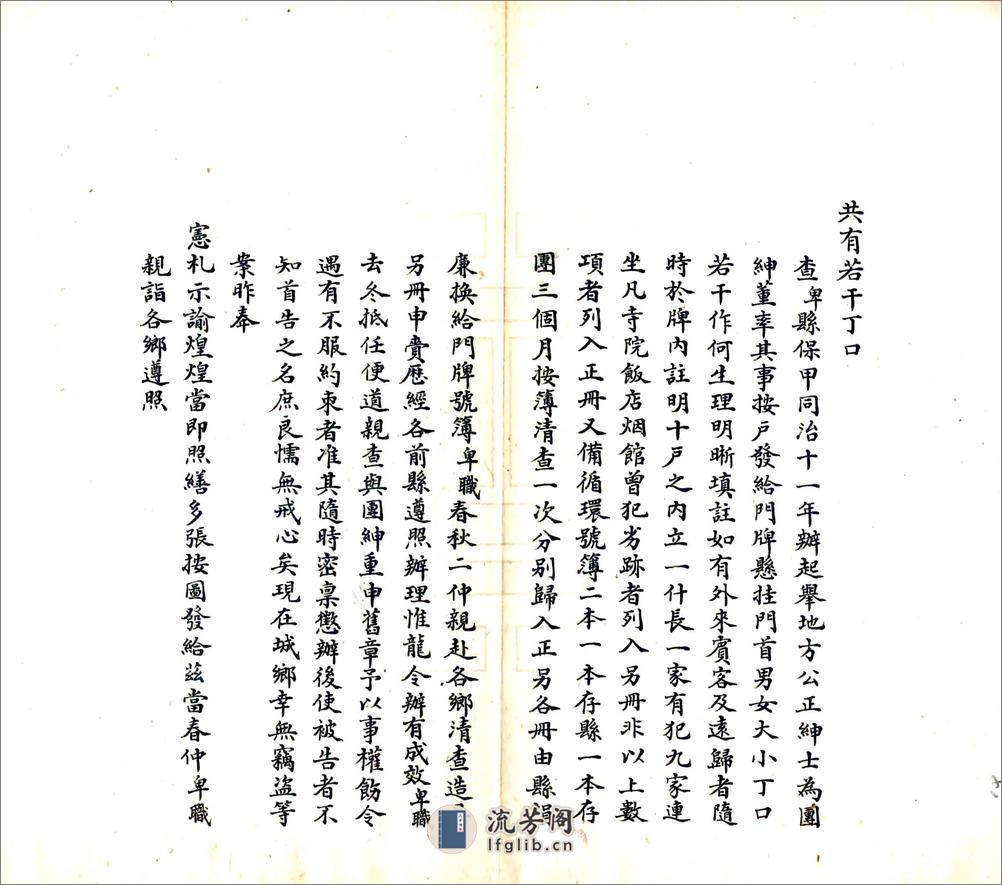 共有若干丁口
查卑縣保甲同治十一年辦起舉地方公正紳士為團
紳董率其事按戶發給門牌懸挂門首男女大小丁口
若干作何生理明晰填註如有外來賓客及遠歸者隨
時於牌內註明十戶之內立一什長一家有犯九家連
坐凡寺院飯店烟館曾犯劣跡者列入另冊非以上數
項者列入正冊又備循環號簿二本一本存縣一本存
團三個月按簿清查一次分別歸入正另各冊由縣捐
廉換給門牌號簿卑職春秋二仲親赴各鄉清查造
另冊申賫歷經各前縣遵照辦理惟龍令辦有成效卑職
去冬抵任便道親查與團紳重申舊章予以事權飭令
遇有不服約束者准其隨時密稟懲辦後使被告者不
知首告之名庶良懦無戒心矣現在城鄉幸無竊盜等
案昨奉
憲札示諭煌煌當即照繕多張按圖發給茲當春仲卑職
親詣各鄉遵照
流芳阁
lfglib.cn